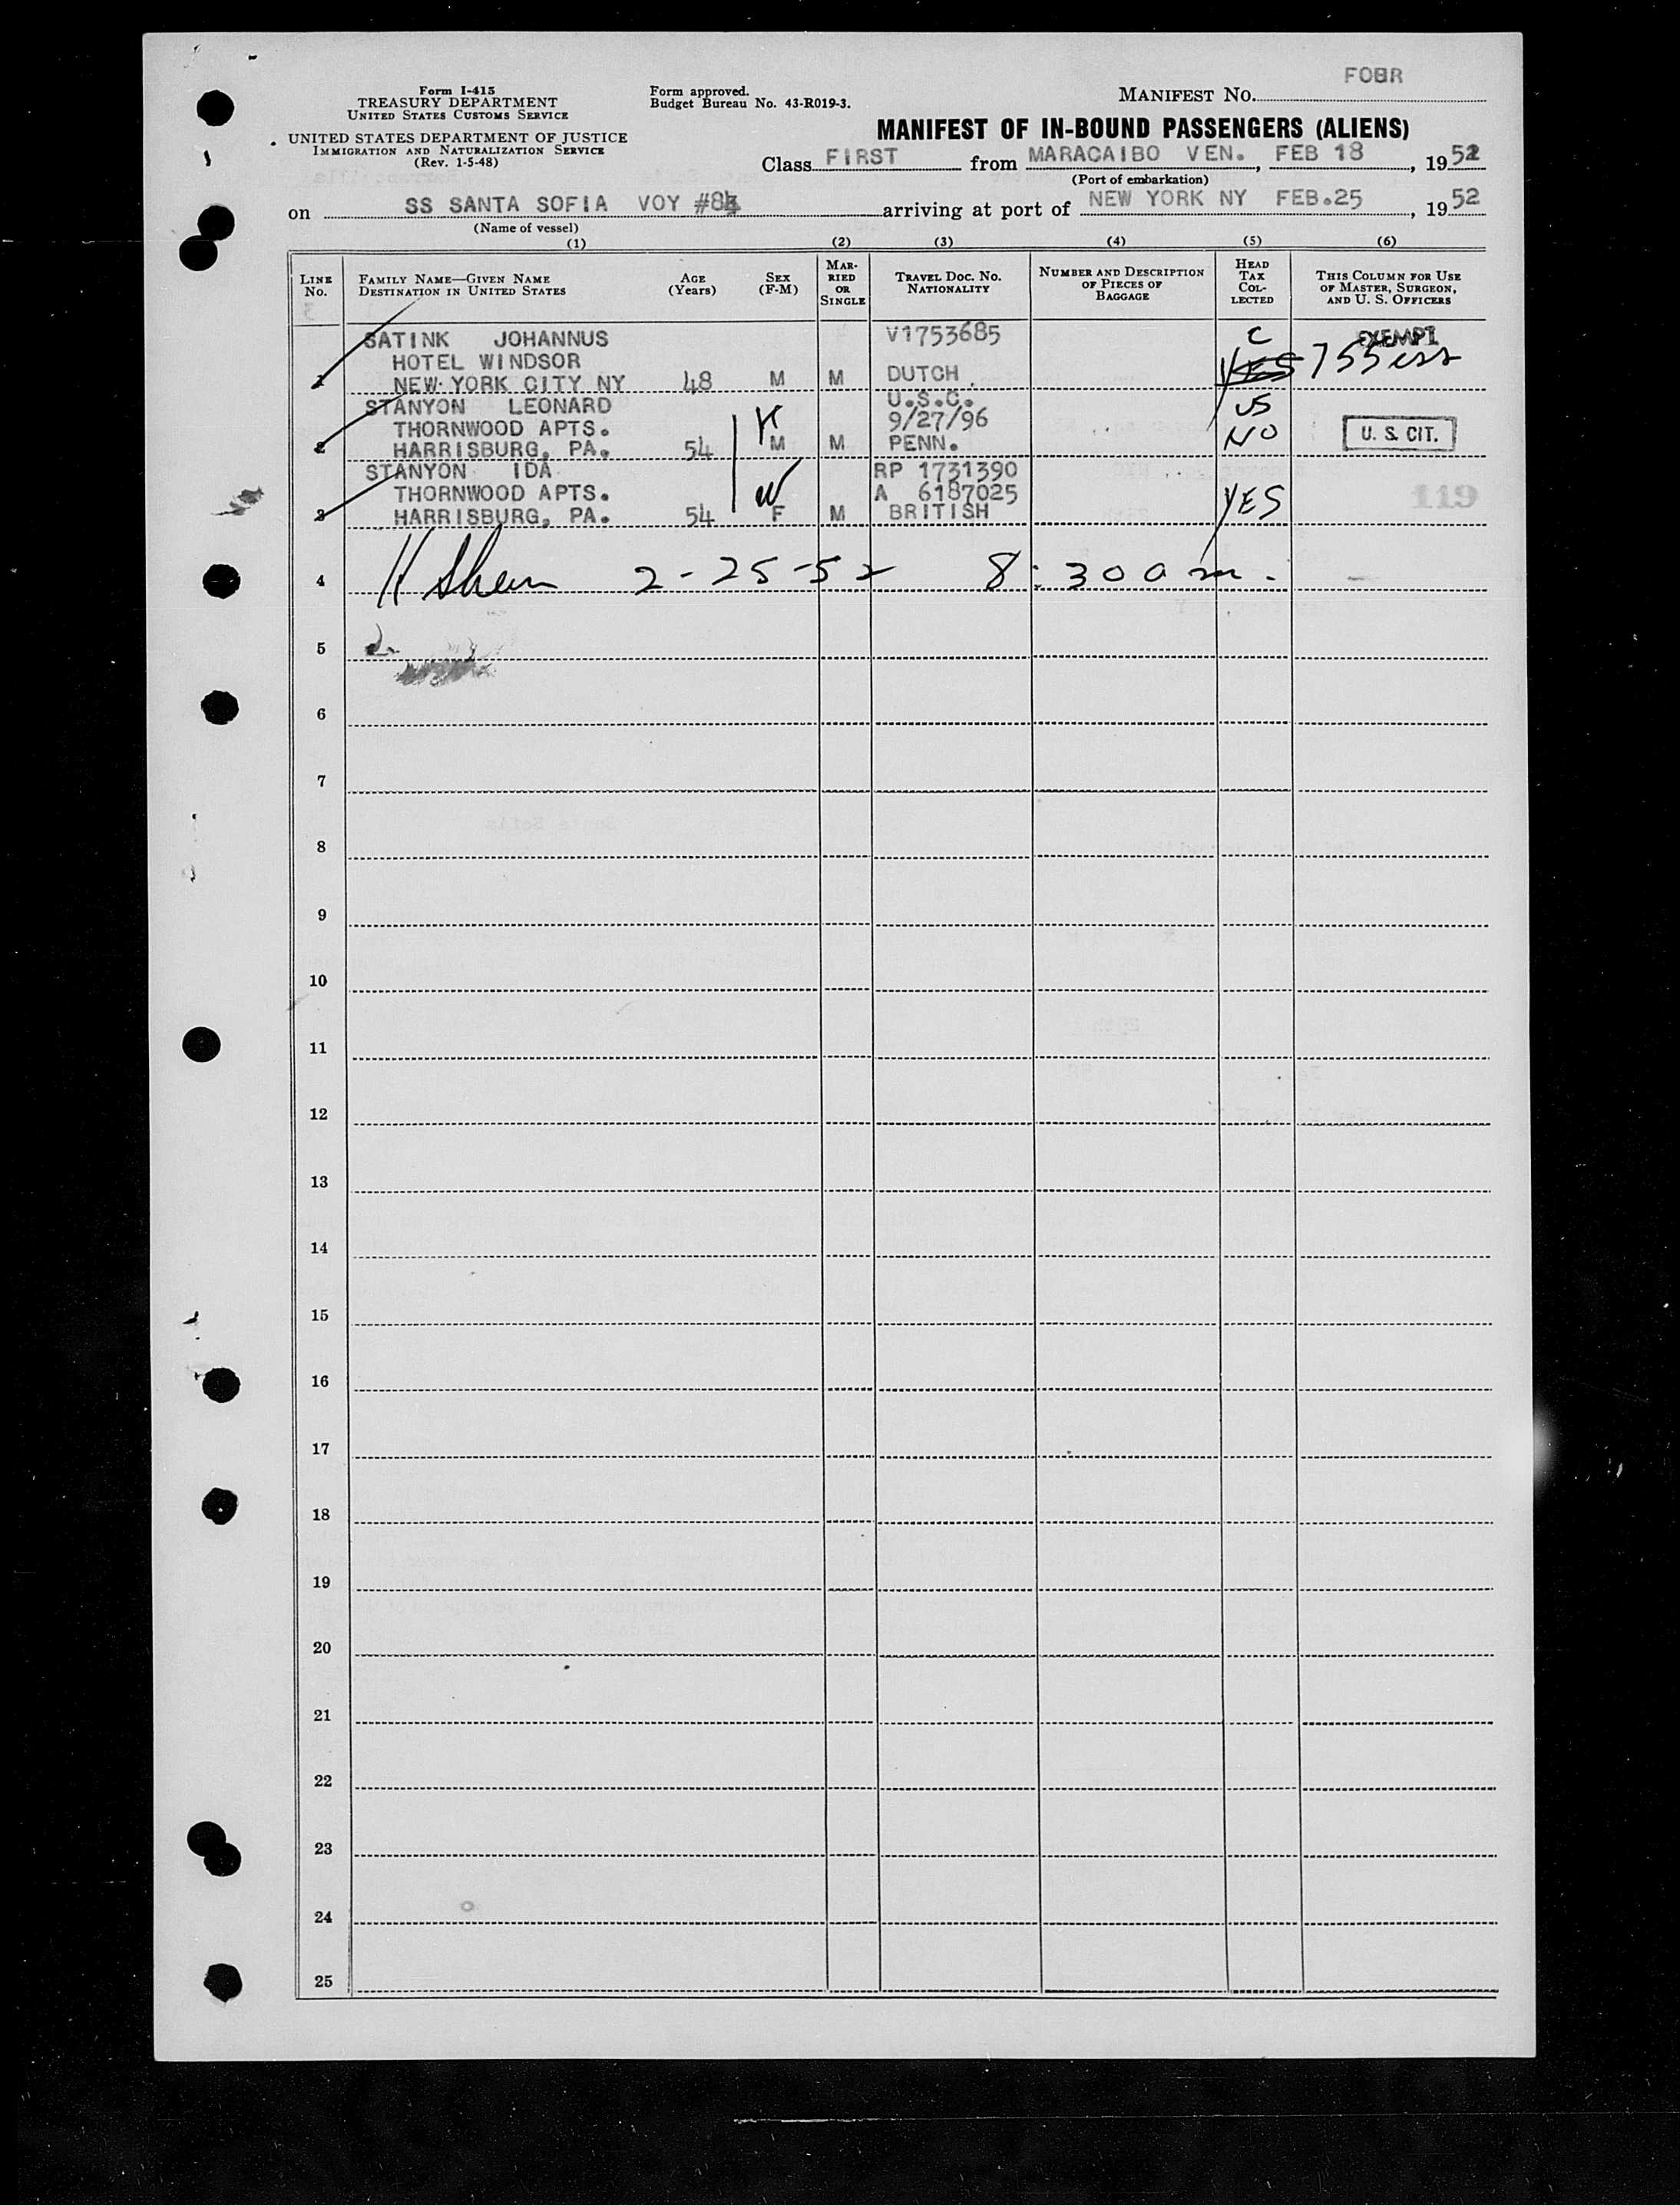 FOBR
Form I-415
TREASURY DEPARTMENT
UNITED STATES CUSTOMS SERVICE
UNITED STATES DEPARTMENT OF JUSTICE
IMMIGRATION AND NATURALIZATION SERVICE
(Rev. 1-5-48)
Form approved.
Budget Bureau No. 43-R019-3.
MANIFEST NO.
MANIFEST OF IN-BOUND PASSENGERS (ALIENS)
Class FIRST from MARACAIBO VEN., FEB 18, 1952
(Port of embarkation)
on SS SANTA SOFIA VOY arriving at port of NEW YORK NY FEB.25, 1952
(Name of vessel)
(1) (2) (3) (4) (5) (6)
LINE NO.
FAMILY NAME—GIVEN NAME
DESTINATION IN UNITED STATES
AGE (Years)
SEX (F-M)
MARRIED OR SINGLE
TRAVEL DOC. NO.
NATIONALITY
NUMBER AND DESCRIPTION OF PIECES OF BAGGAGE
HEAD TAX COLLECTED
THIS COLUMN FOR USE OF MASTER, SURGEON, AND U. S. OFFICERS
SATINK JOHANNUS V1753685 C EXEMPT
HOTEL WINDSOR
1 NEW YORK CITY NY 48 M M DUTCH YES
STANYON LEONARD U.S.C. US
THORNWOOD APTS. 9/27/96
2 HARRISBURG, PA. 54 M M PENN. NO U. S. CIT.
STANYON IDA RP 1731390
THORNWOOD APTS. W A 6187025 YES 119
3 HARRISBURG, PA. 54 F M BRITISH
4 2-25-52 8:30 am.
5
6
7
8
9
10
11
12
13
14
15
16
17
18
19
20
21
22
23
24
25